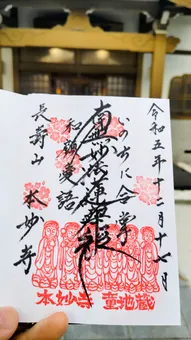 令和五年十二月十七日
いのちに合掌
南無妙法蓮華経
和顔愛語
長寿山
本妙寺
本妙寺 童地蔵